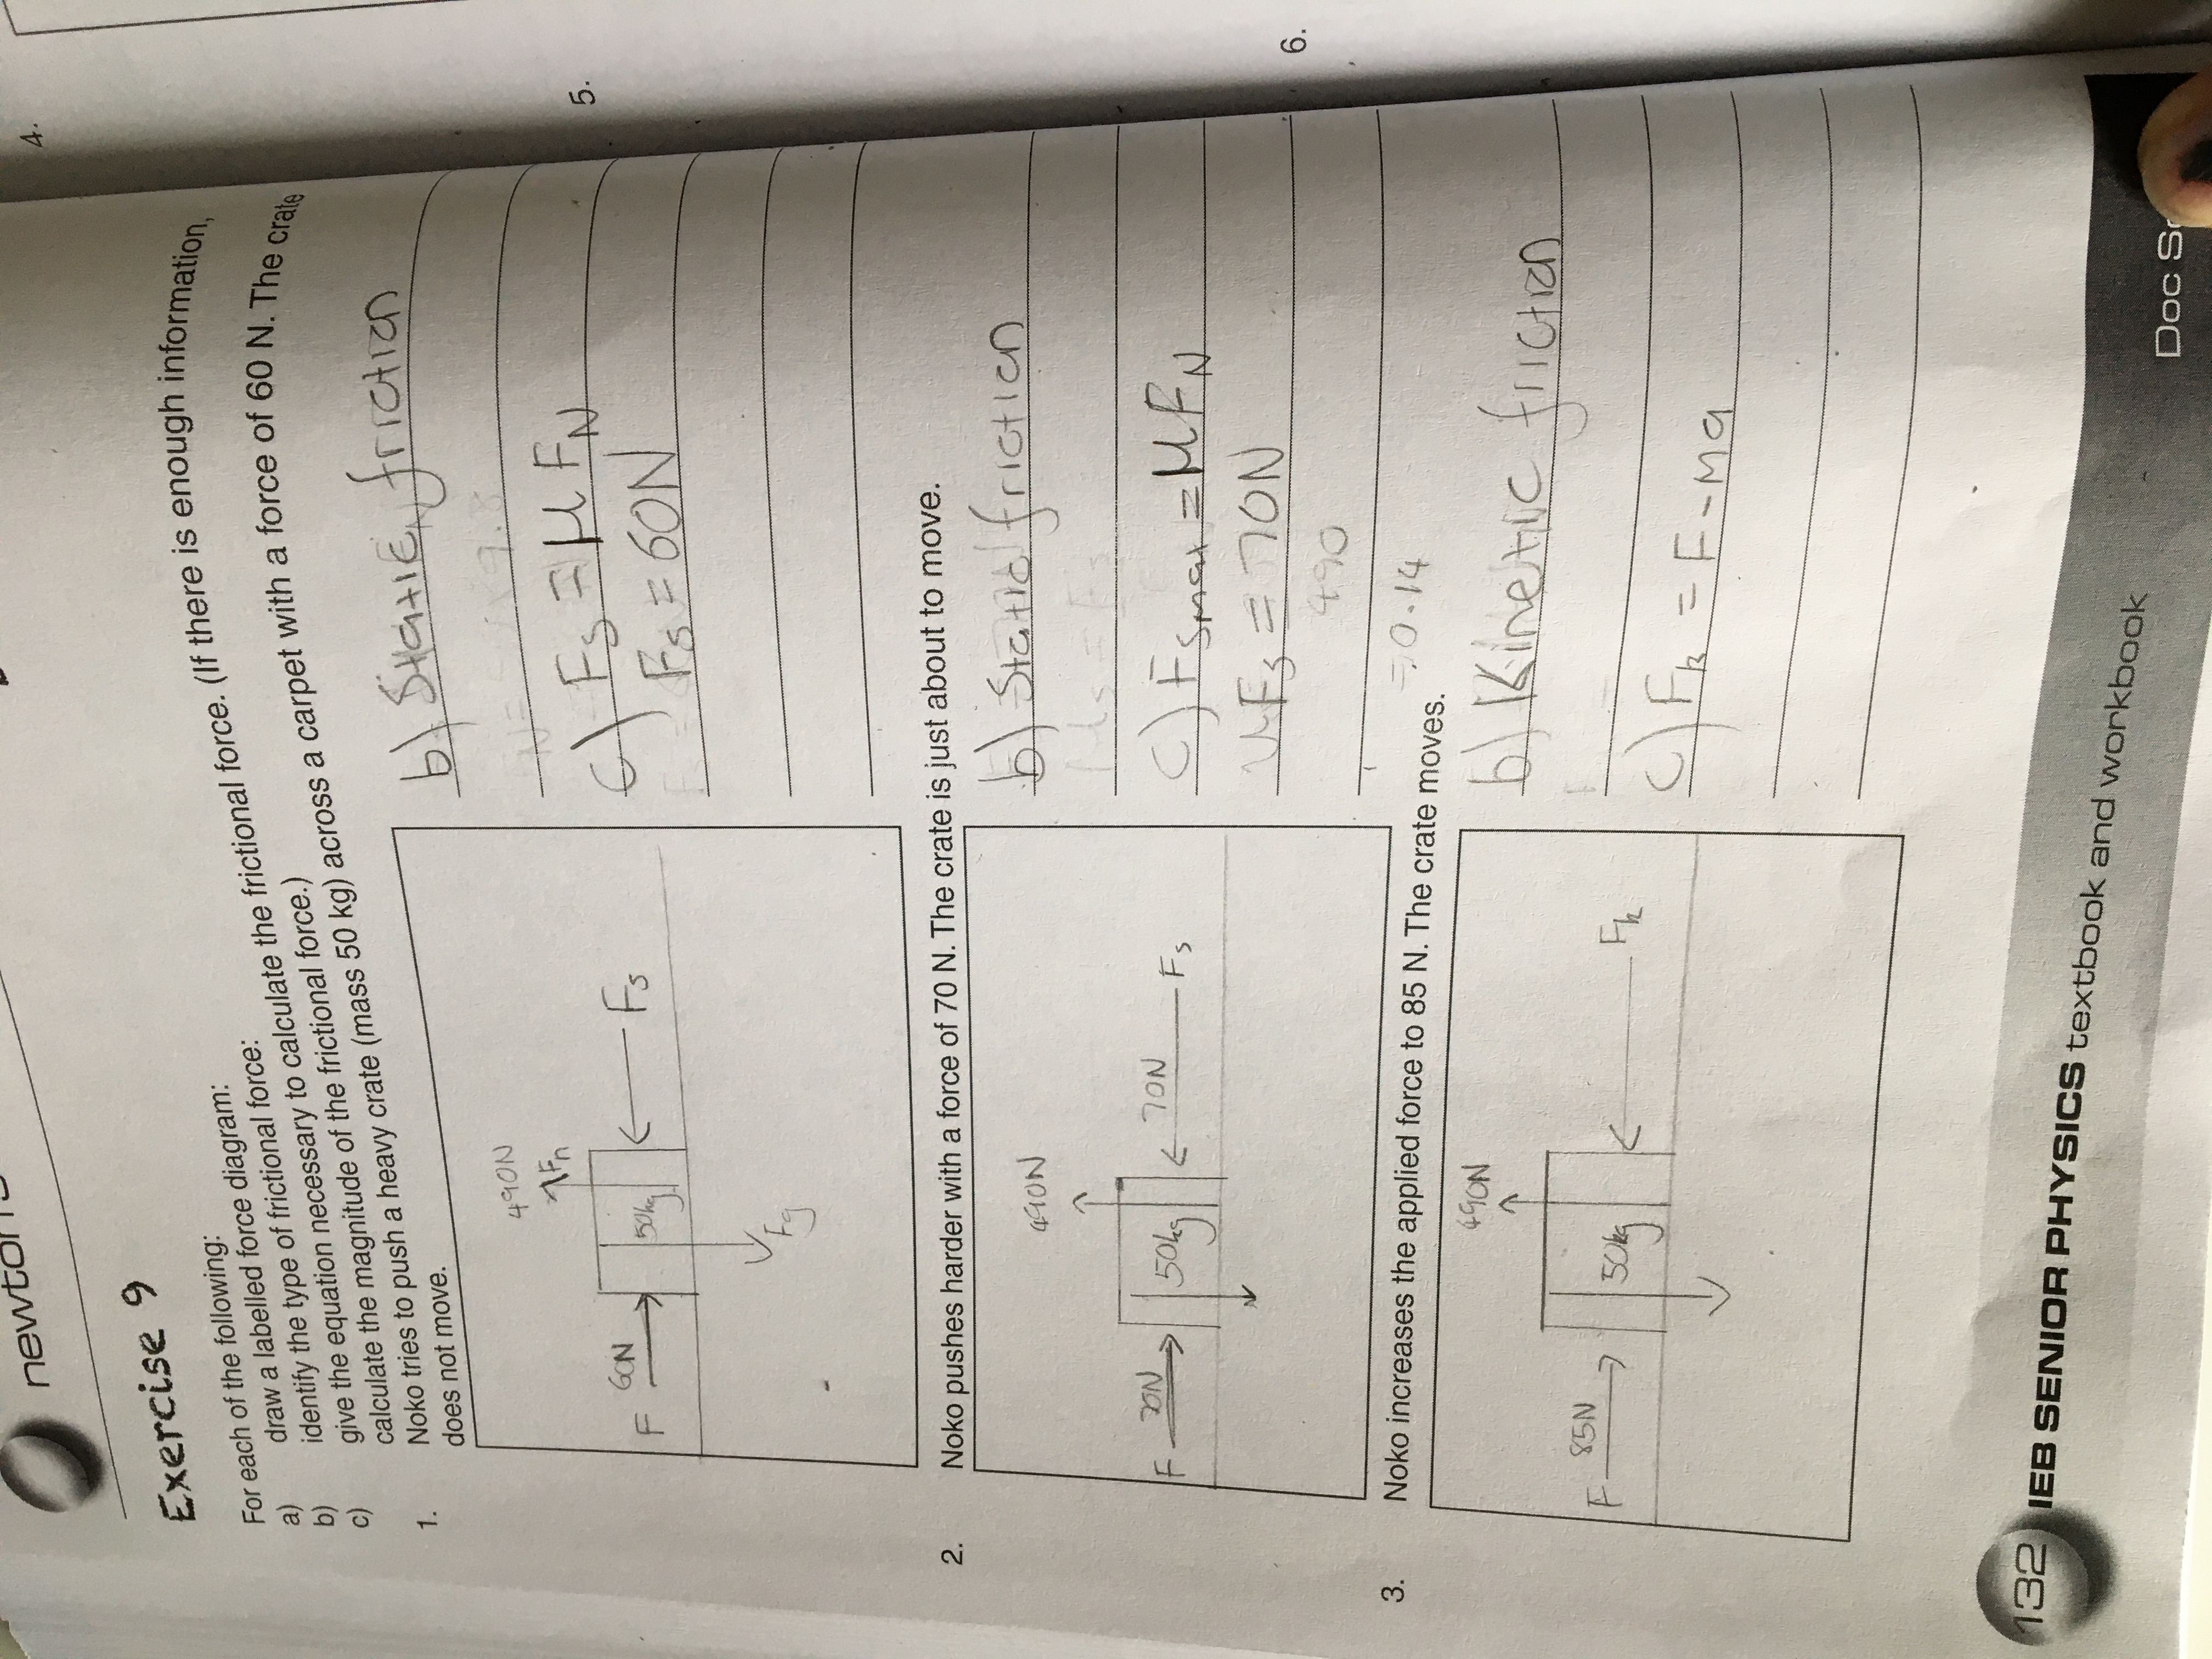 Exercise 9
For each of the following:
a) draw a labelled force diagram:
b) identify the type of frictional force:
c) give the equation necessary to calculate the frictional force. (If there is enough information,
calculate the magnitude of the frictional force.)
1. Noko tries to push a heavy crate (mass 50 kg) across a carpet with a force of 60 N. The crate
does not move.
490N
Fn
F 60N
50kg
Fs
Fg
b) Static friction
c) Fs = μ FN
Fs = 60N
2. Noko pushes harder with a force of 70 N. The crate is just about to move.
490N
F 70N
50kg
70N Fs
b) Static friction
c) Fsmax = μFN
Fs = 70N
490
= 0.14
3. Noko increases the applied force to 85 N. The crate moves.
490N
F 85N
50kg
Fk
b) Kinetic friction
c) Fk = F - Ma
4.
5.
6.
132 IEB SENIOR PHYSICS textbook and workbook
Doc